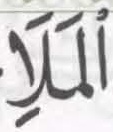 اُلْمَلَإِ